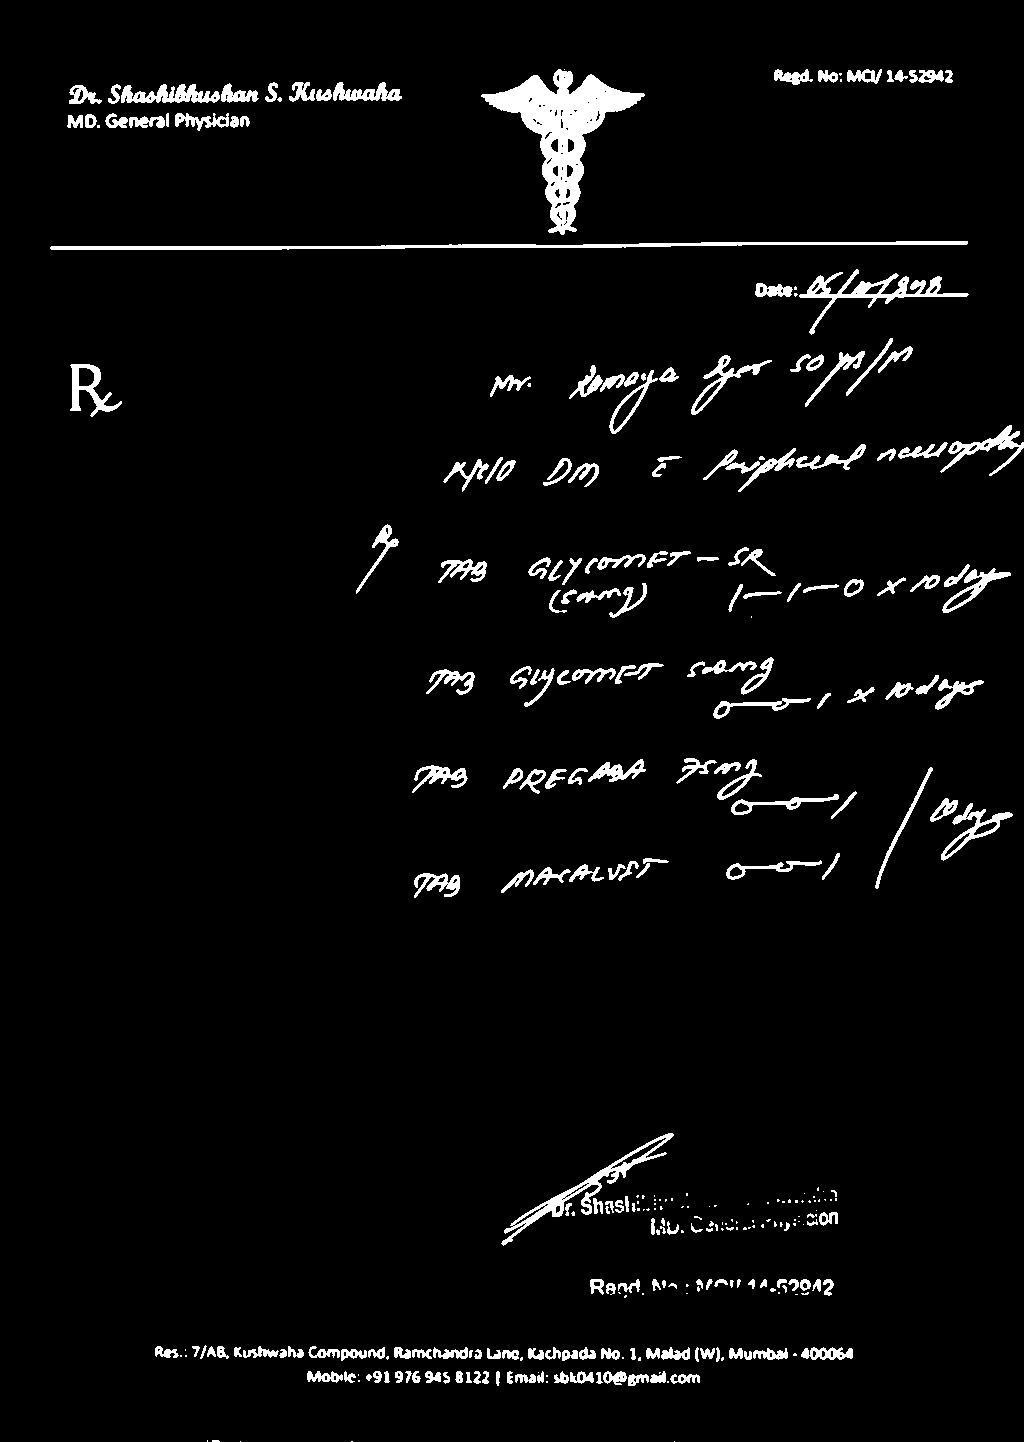 Dr. Shashibhushan S. Kushwaha
MD. General Physician
Regd. No: MCI/ 14-52942
Date: 06/11/
Rx
Mr. 50 yrs/M
K/c/o DM c̄ Peripheral neuropathy
Rp
TAB GLYCOMET - SR
(500mg) 1—1—0 x 10 days
TAB GLYCOMET 500mg
0—0—1 x 10 days
TAB PREGABA 75mg
0—0—1
10 days
TAB 0—0—1
Dr. Shashibhushan S. Kushwaha
MD. General Physician
Regd. No.: MCI/ 14-52942
Res.: 7/AB, Kushwaha Compound, Ramchandra Lane, Kachpada No. 1, Malad (W), Mumbai - 400064
Mobile: +91 976 945 8122 | Email: sbk0410@gmail.com